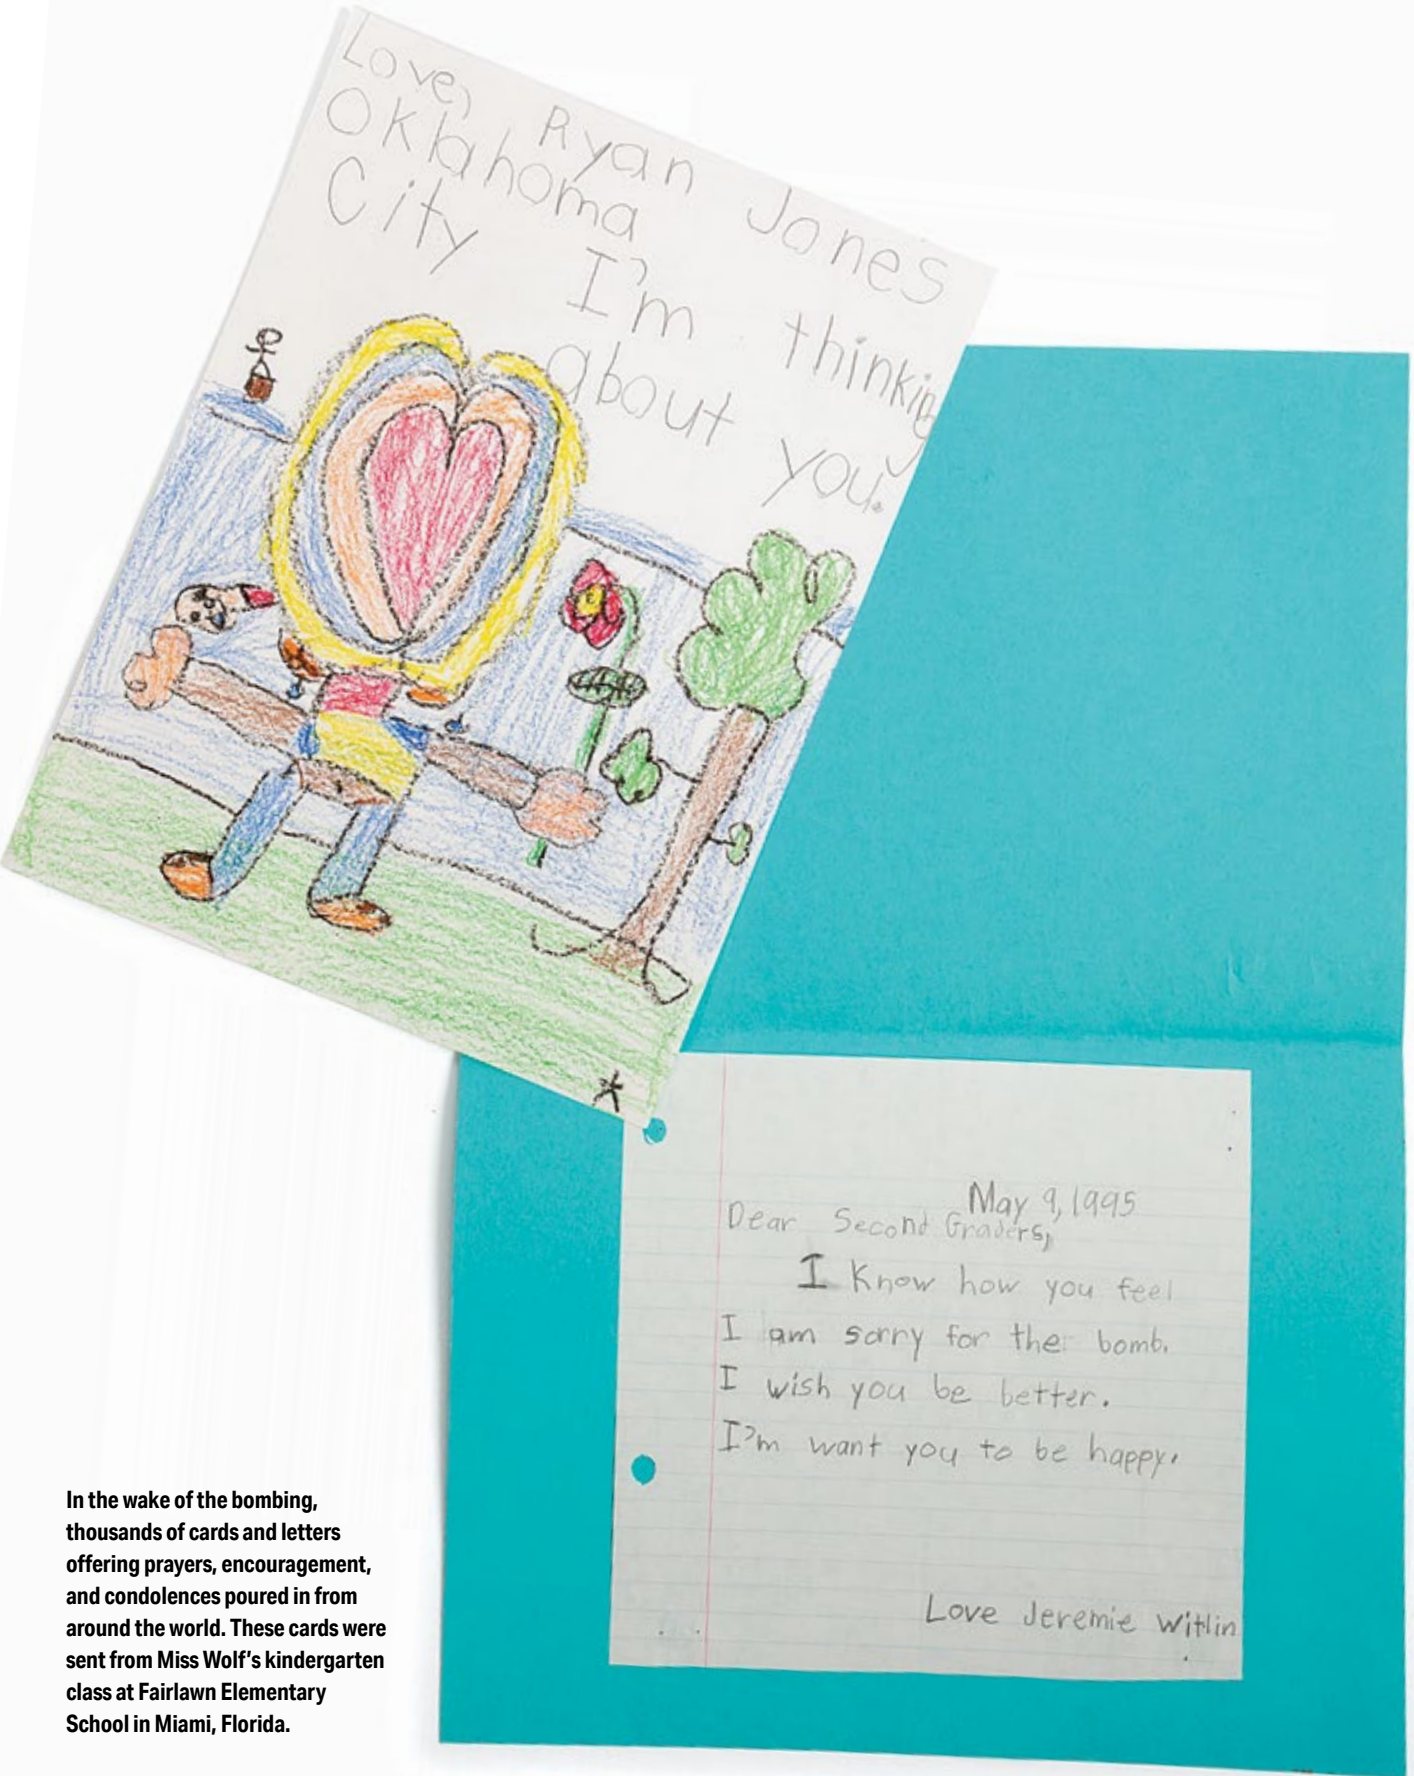 Love, Ryan Jones
Oklahoma
City I'm thinking
about you.
May 9, 1995
Dear Second Graders,
I know how you feel
I am sorry for the bomb.
I wish you be better.
I'm want you to be happy.
Love Jeremie Witlin
In the wake of the bombing,
thousands of cards and letters
offering prayers, encouragement,
and condolences poured in from
around the world. These cards were
sent from Miss Wolf's kindergarten
class at Fairlawn Elementary
School in Miami, Florida.